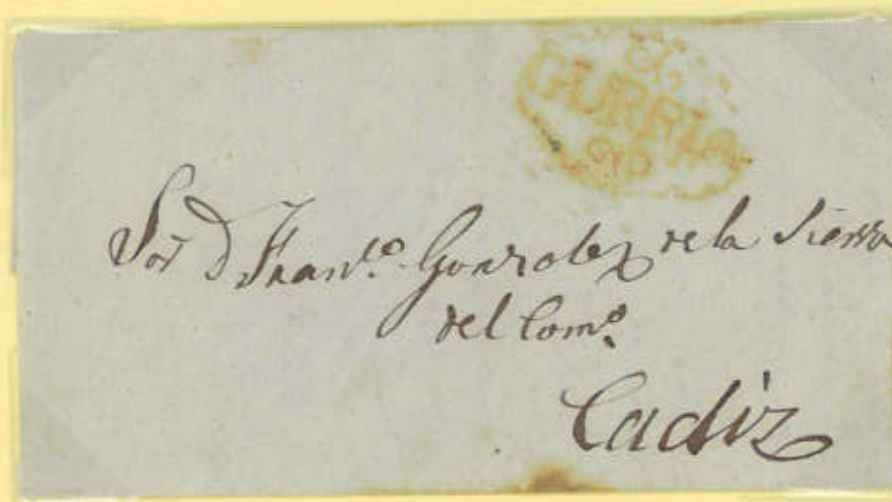 Sor D Franco. Gonzalez de la Sierra
del Como.
Cadiz